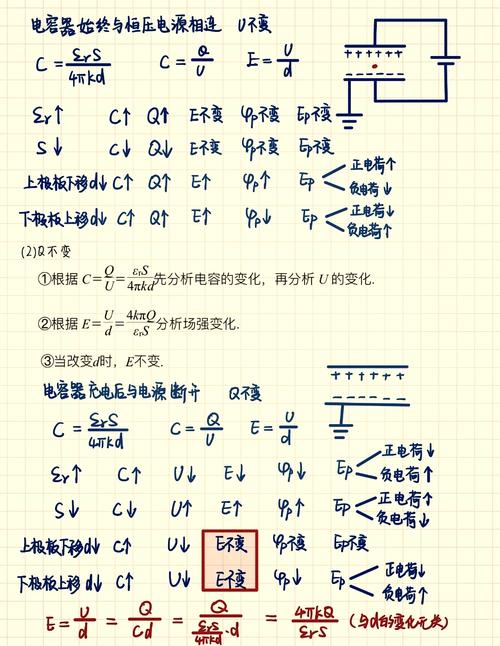 电容器始终与恒压电源相连 U不变
C = εrS/4πkd  C = Q/U  E = U/d
+ + + + + +
εr↑ C↑ Q↑ E不变 φp不变 Ep不变
S↓ C↓ Q↓ E不变 φp不变 Ep不变
上极板下移d↓ C↑ Q↑ E↑ φp↑ Ep 正电荷↑ 负电荷↓
下极板上移d↓ C↑ Q↑ E↑ φp↓ Ep 正电荷↓ 负电荷↑
(2)Q不变
①根据 C=Q/U=εrS/4πkd先分析电容的变化，再分析 U 的变化.
②根据 E=U/d=4kπQ/εrS分析场强变化.
③当改变d时，E不变.
电容器充电后与电源断开 Q不变
+ + + + + + +
C = εrS/4πkd  C = Q/U  E = U/d
εr↑ C↑ U↓ E↓ φp↓ Ep 正电荷↓ 负电荷↑
S↓ C↓ U↑ E↑ φp↑ Ep 正电荷↑ 负电荷↓
上极板下移d↓ C↑ U↓ E不变 φp不变 Ep不变
下极板上移d↓ C↑ U↓ E不变 φp↓ Ep 正电荷↓ 负电荷↑
E = U/d = Q/Cd = Q/(εrS/4πkd · d) = 4πkQ/εrS (与d的变化无关)